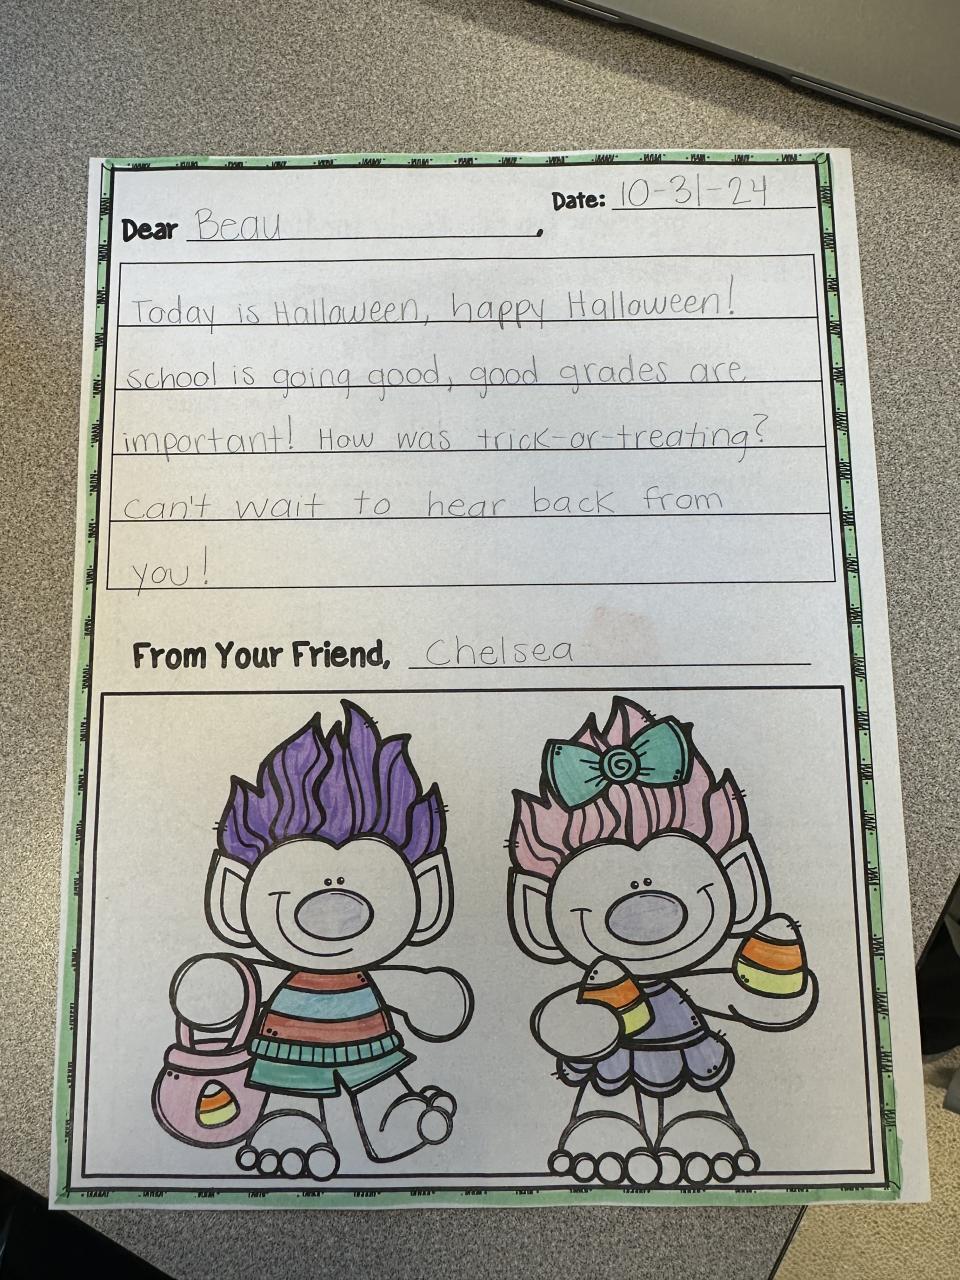 Date: 10-31-24
Dear Beau,
Today is Halloween, happy Halloween!
school is going good, good grades are
important! How was trick-or-treating?
can't wait to hear back from
you!
From Your Friend, Chelsea